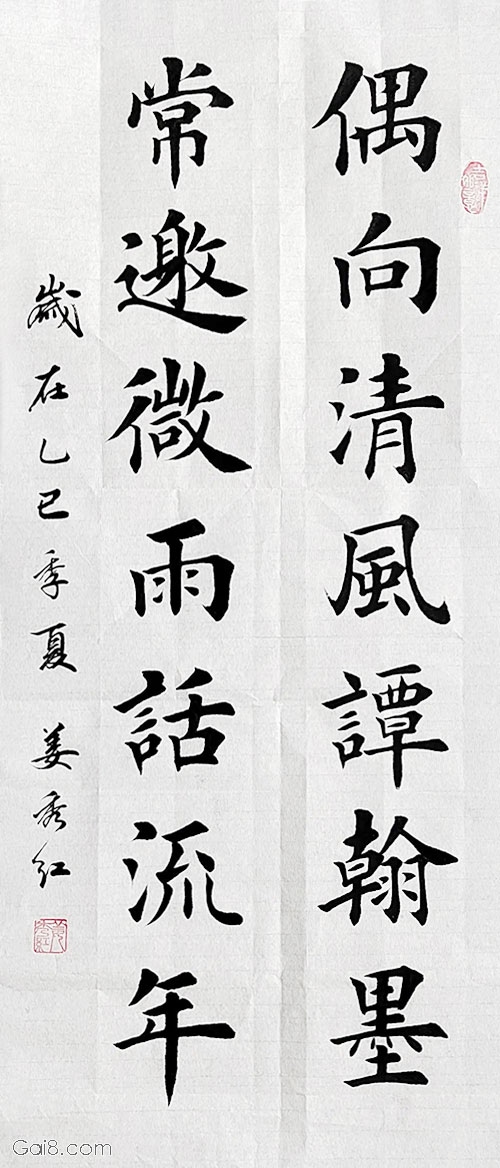 偶向清風譚翰墨
常邀微雨話流年
歲在乙巳季夏 姜秀红
Gai8.com